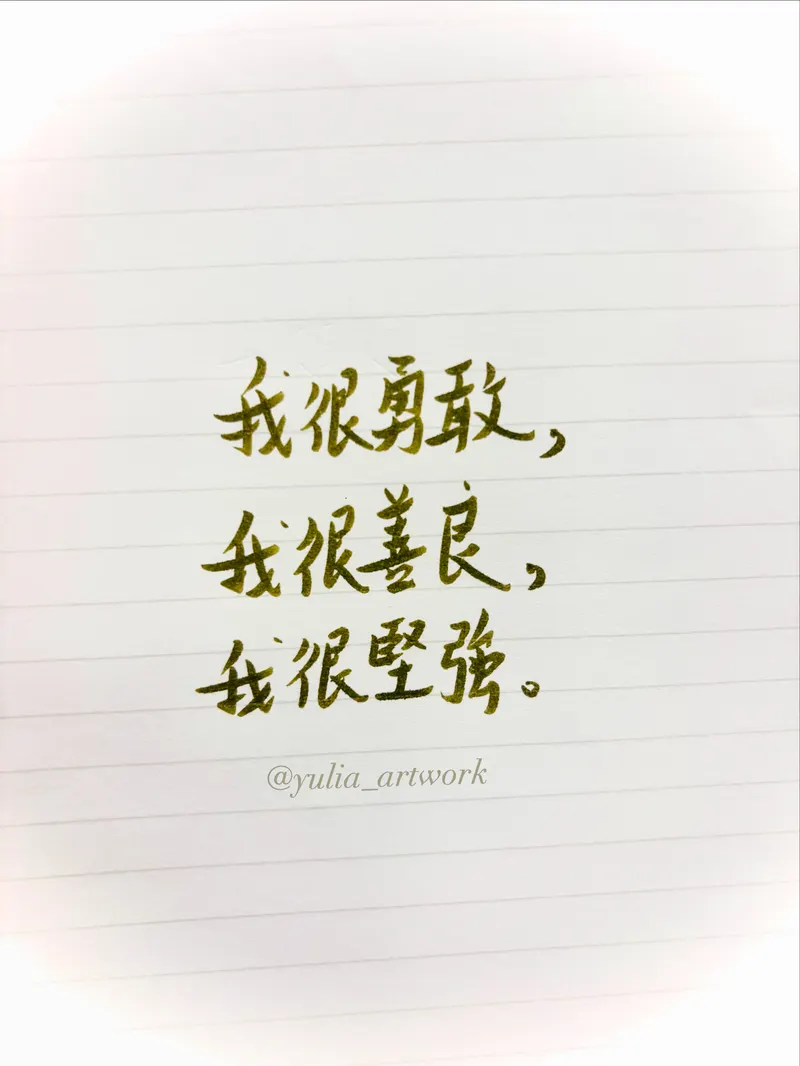 我很勇敢，
我很善良，
我很堅強。
@yulia_artwork